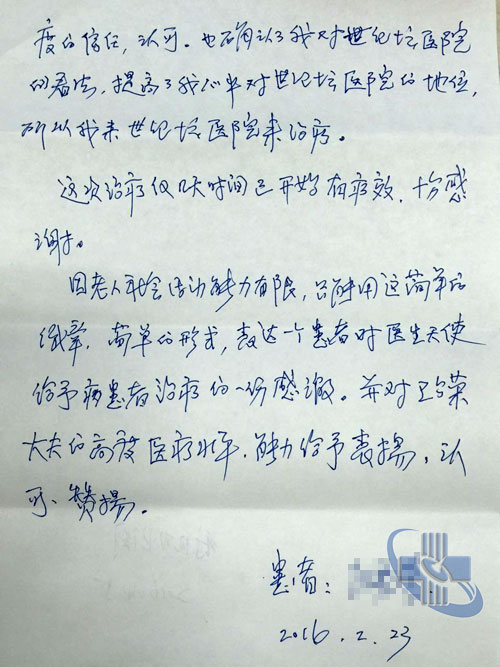 度的信任,认可。也确认了我对世纪坛医院
的看法,提高了我心中对世纪坛医院的地位,
所以我来世纪坛医院来治疗。
这次治疗仅几天时间已开始有疗效,十分感
谢。
因老人社会活动能力有限,只能用这简单的
纸笔,简单的形式,表达一个患者对医生天使
给予病患者治疗的一份感激。并对
大夫的高度医疗水平,能力给予表扬,认
可、赞扬。
患者:
2016.2.23